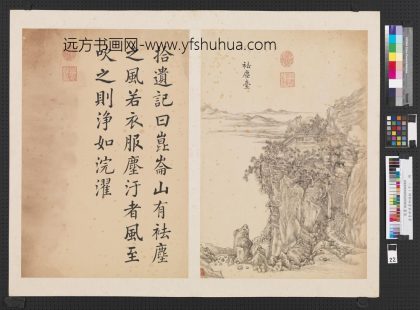 远方书画网-www.yfshuhua.com
祛塵臺
拾遺記曰崑崙山有祛塵
之風若衣服塵汙者風至
吹之則浄如浣濯